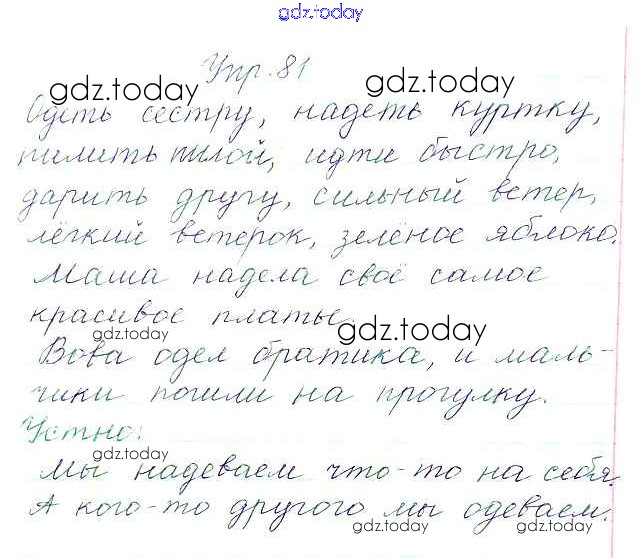 gdz.today
Упр. 81
gdz.today gdz.today
Одеть сестру, надеть куртку,
пилить пилой, идти быстро,
gdz.today gdz.today
дарить другу, сильный ветер,
лёгкий ветерок, зелёное яблоко.
Маша надела своё самое
красивое платье.
gdz.today gdz.today
Вова одел братика, и маль-
чики пошли на прогулку.
Устно:
gdz.today
Мы надеваем что-то на себя.
А кого-то другого мы одеваем.
gdz.today gdz.today